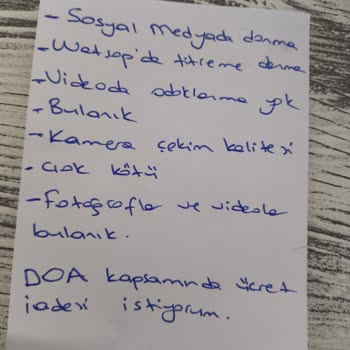 - Sosyal medyada donma
- Watsap'da titreme donma
- Videoda odaklanma yok
- Bulanık
- Kamera çekim kalitesi
- Çok kötü
- Fotoğrafla ve videola
bulanık.
DOA kapsamında ücret
iadesi istiyorum.